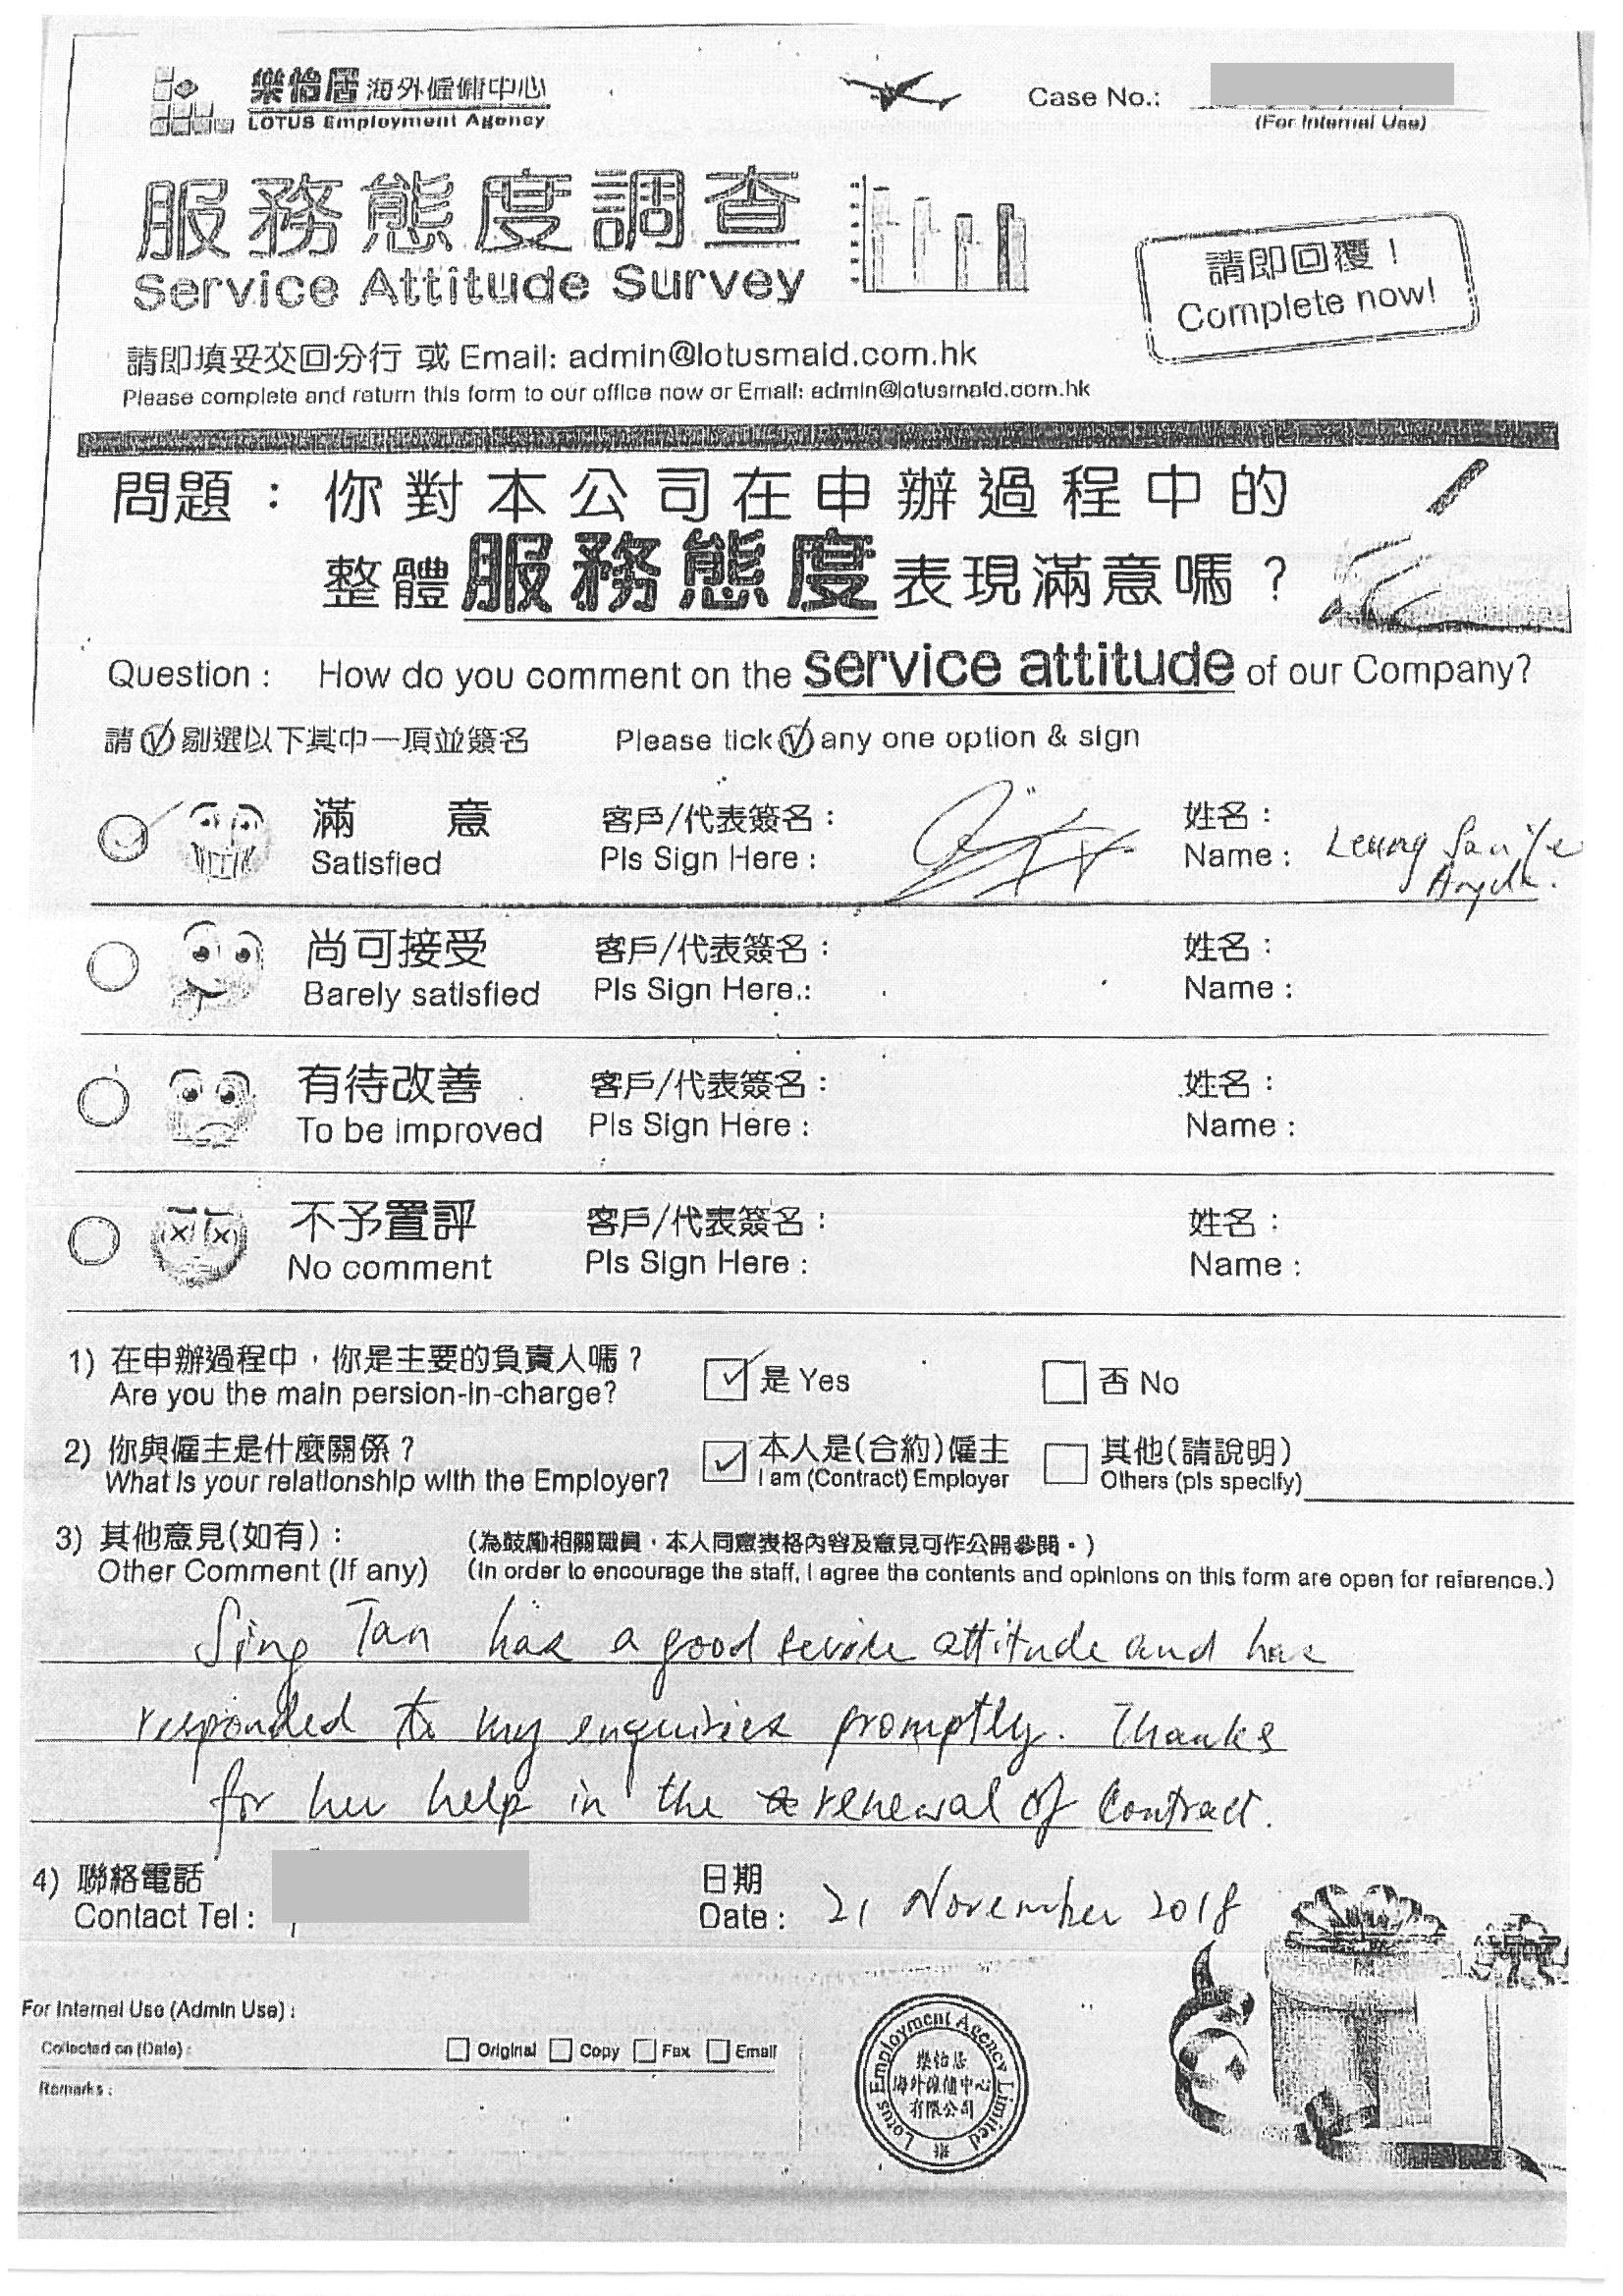 樂怡居海外僱傭中心
LOTUS Employment Agency
Case No.:
(For Internal Use)
服務態度調查
Service Attitude Survey
請即回覆！
Complete now!
請即填妥交回分行 或 Email: admin@lotusmaid.com.hk
Please complete and return this form to our office now or Email: admin@lotusmaid.com.hk
問題：你對本公司在申辦過程中的
整體服務態度表現滿意嗎？
Question : How do you comment on the service attitude of our Company?
請 ✓ 剔選以下其中一項並簽名 Please tick ✓ any one option & sign
滿 意 客戶/代表簽名： 姓名：
Satisfied Pls Sign Here : Name : Leung
尚可接受 客戶/代表簽名： 姓名：
Barely satisfied Pls Sign Here : Name :
有待改善 客戶/代表簽名： 姓名：
To be improved Pls Sign Here : Name :
不予置評 客戶/代表簽名： 姓名：
No comment Pls Sign Here : Name :
1) 在申辦過程中，你是主要的負責人嗎？ 是 Yes 否 No
Are you the main persion-in-charge?
2) 你與僱主是什麼關係？ 本人是(合約)僱主 其他(請說明)
What is your relationship with the Employer? I am (Contract) Employer Others (pls specify)
3) 其他意見(如有)： (為鼓勵相關職員，本人同意表格內容及意見可作公開參閱。)
Other Comment (If any) (In order to encourage the staff, I agree the contents and opinions on this form are open for reference.)
Sing Tan has a good service attitude and has
responded to my enquiries promptly. Thanks
for her help in the renewal of contract.
4) 聯絡電話 日期
Contact Tel : Date : 21 November 2018
For Internal Use (Admin Use) :
Collected on (Date) : Original Copy Fax Email
Remarks :
Lotus Employment Agency Limited
樂怡居
海外僱傭中心
有限公司